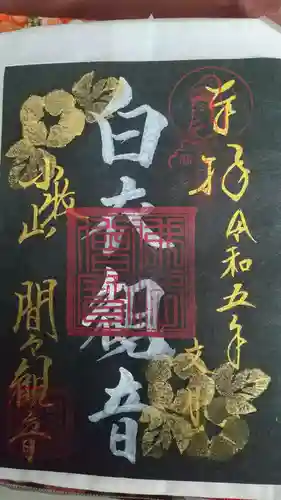 奉拝
令和五年
文月
白衣観音
小牧山
間々観音